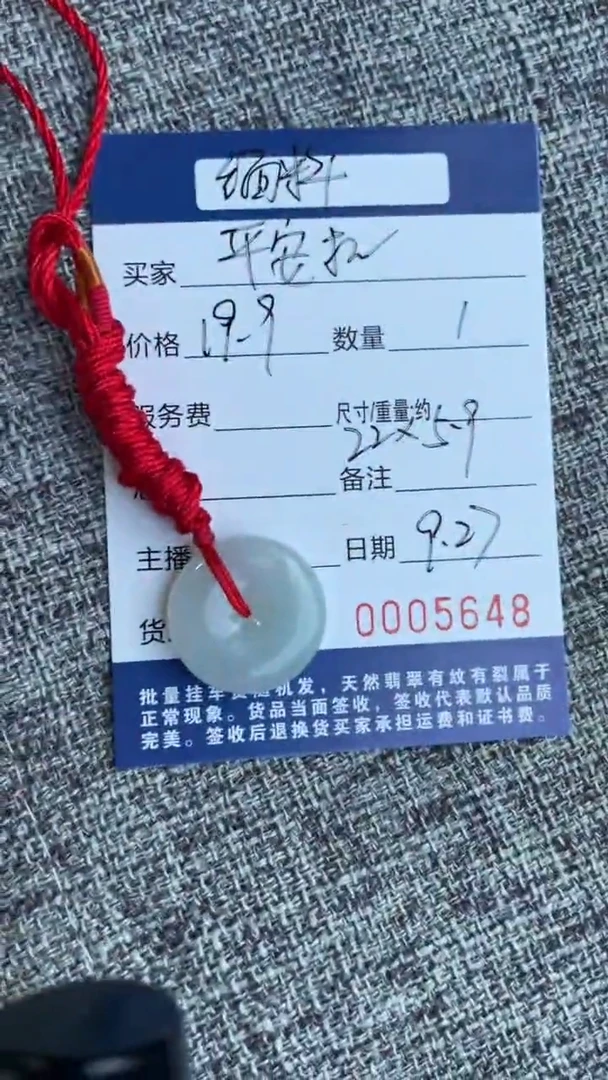 缅料
买家 平安扣
价格 19.9 数量 1
服务费 尺寸/重量:约 22×5.9
备注
主播 日期 9.27
货 0005648
批量挂车货随机发，天然翡翠有纹有裂属于
正常现象。货品当面签收，签收代表默认品质
完美。签收后退换货买家承担运费和证书费。